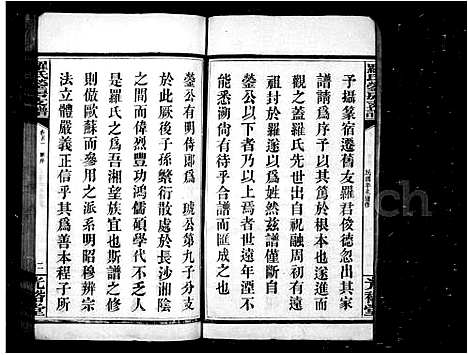 予攝篆宿遷舊友羅君俊德忽出其家
譜請爲序予以敦於根本也遂進而
觀之蓋羅氏先世出自祝融周初初
祖封於羅遂以國爲姓茲譜僅斷自
鎣公而溯鎣公以上爲者世遠年湮不
能悉合譜而匯成之也
鎣公有明侍郎爲 琥公第九子分支
於此厥後子孫繁衍散處於長沙湘陰
間而偉烈豐功鴻儒碩學代不乏人
是羅氏之爲吾湘望族宜也斯譜之修
倣歐蘇而參用之派系明昭穆辨宗
法立體嚴義正信乎其爲善本程子所
光裕堂